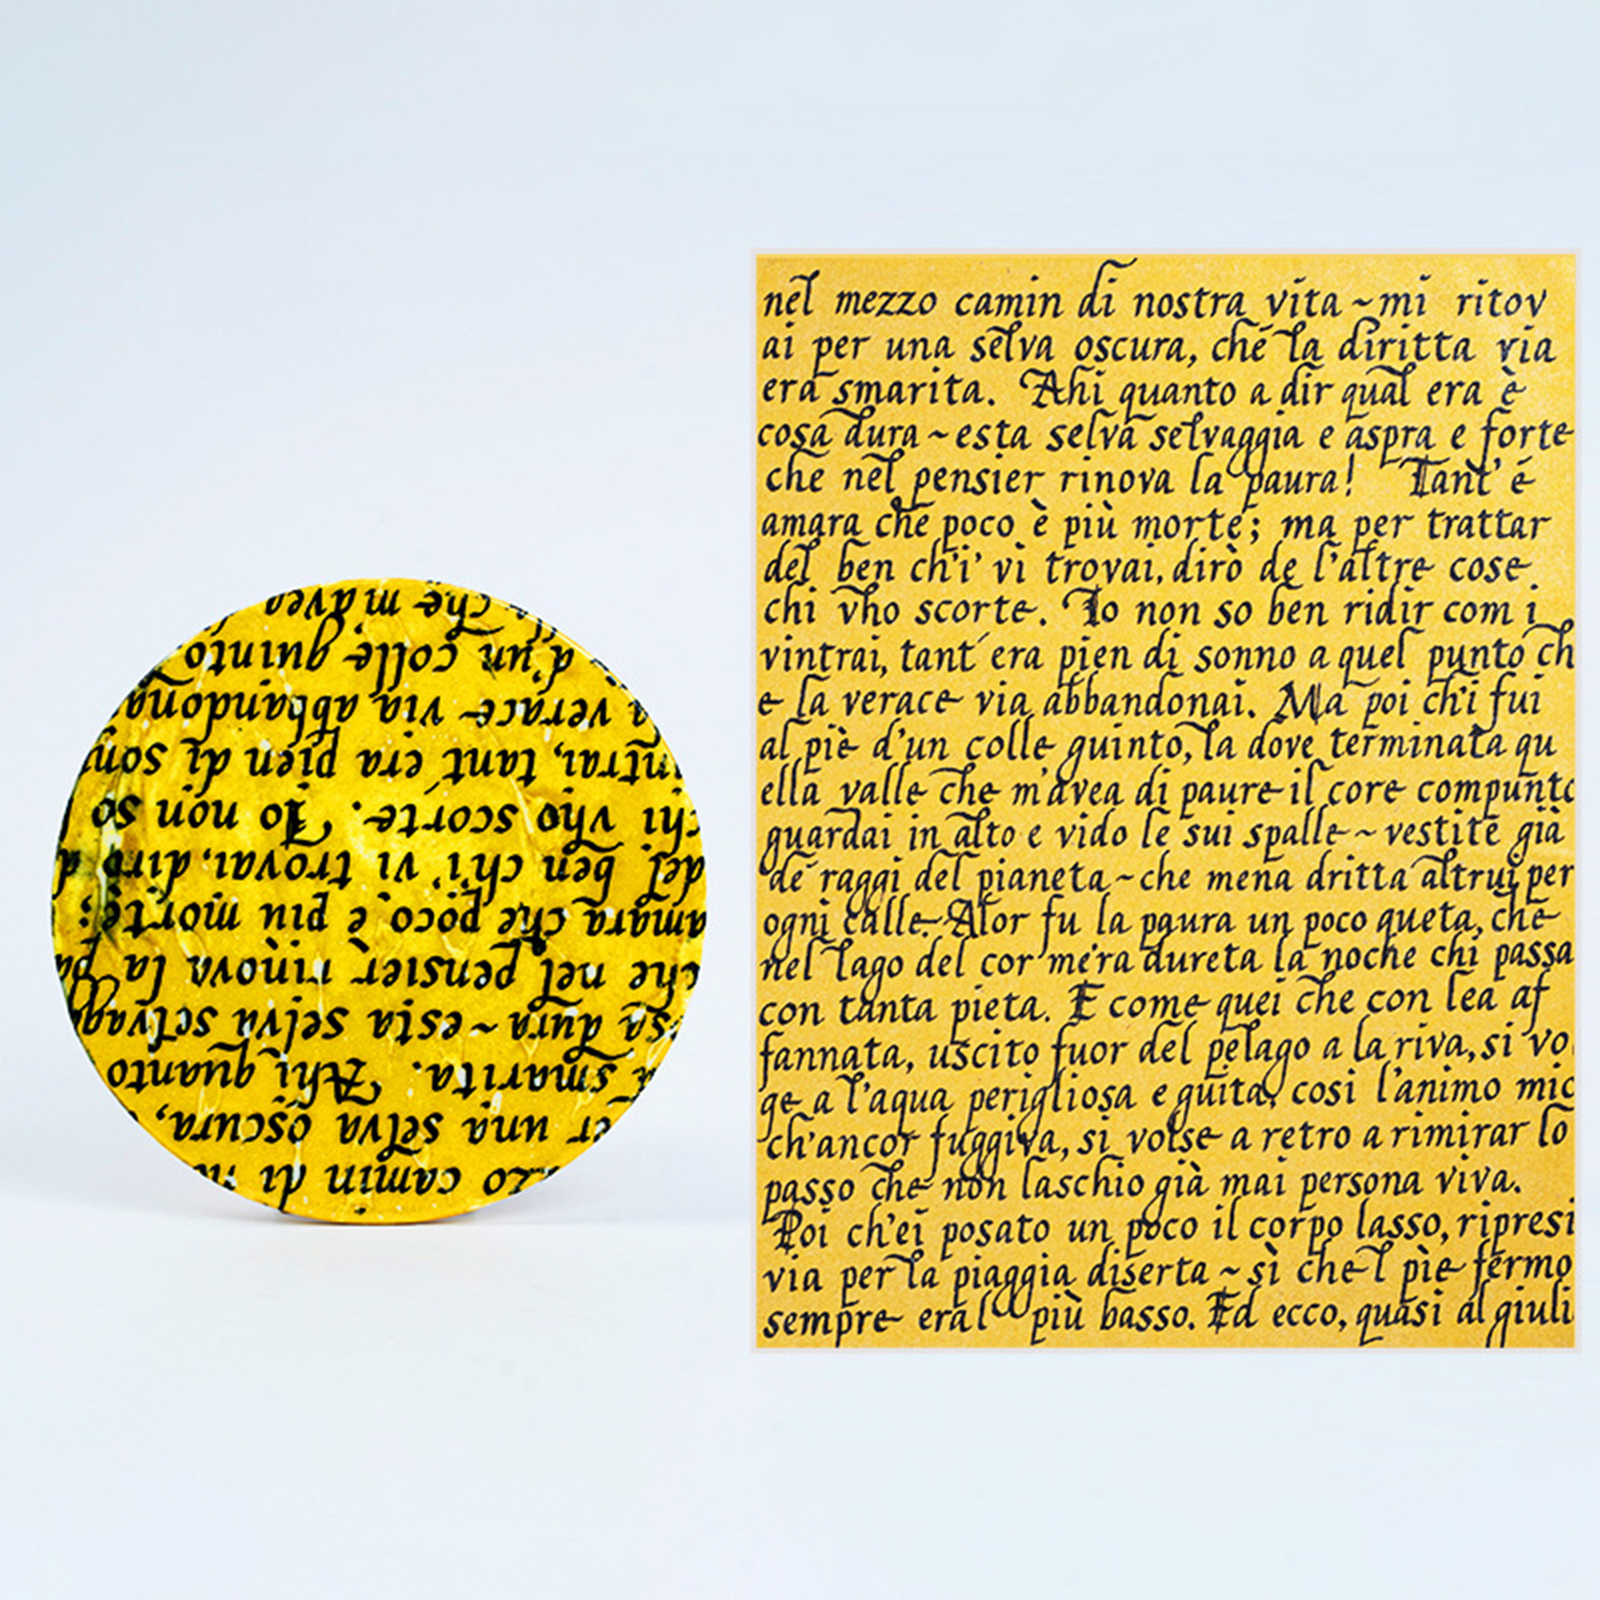 zo camin di n
er una selva oscura,
smarita. Ahi quanto
sa dura ~ esta selva selvag
che nel pensier rinova la pa
amara che poco è più morte;
del ben ch'i' vi trovai, dirò d
chi vho scorte. Io non so
ntrai, tant era pien di son
a verace via abbandona
d'un colle guinto,
che m'avea
nel mezzo camin di nostra vita ~ mi ritov
ai per una selva oscura, ché la diritta via
era smarita. Ahi quanto a dir qual era è
cosa dura ~ esta selva selvaggia e aspra e forte
che nel pensier rinova la paura! Tant' é
amara che poco è più morte; ma per trattar
del ben ch'i' vi trovai, dirò de l'altre cose
chi vho scorte. Io non so ben ridir com i
vintrai, tant' era pien di sonno a quel punto ch
e la verace via abbandonai. Ma poi ch'i fui
al piè d'un colle guinto, la dove terminata qu
ella valle che m'avea di paure il core compunto
guardai in alto e vido le sui spalle ~ vestite già
de raggi del pianeta ~ che mena dritta altrui per
ogni calle. Alor fu la paura un poco queta, che
nel lago del cor m'era dureta la noche chi passa
con tanta pieta. E come quei che con lea af
fannata, uscito fuor del pelago a la riva, si vo
ge a l'aqua perigliosa e guita, cosi l'animo mio
ch'ancor fuggiva, si volse a retro a rimirar lo
passo che non laschio già mai persona viva.
Poi ch'ei posato un poco il corpo lasso, ripresi
via per la piaggia diserta ~ sì che l piè fermo
sempre era l più basso. Ed ecco, quasi al giuli